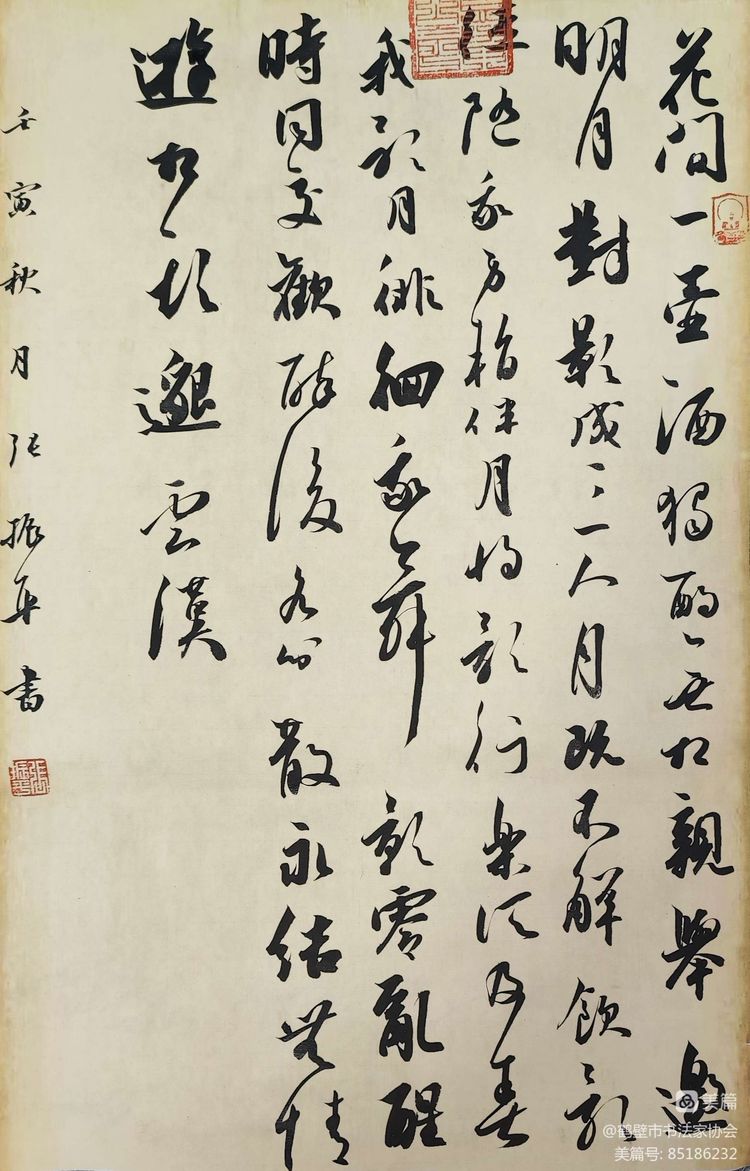 花间一壺酒獨酌無相親舉邀
明月對影成三人月既不解飲影
徒随我身暫伴月将影行樂須及春
我歌月徘徊我舞影零亂醒
時同交歡醉後各分散永結無情
遊相期邈雲漢
壬寅秋月张振書
美篇
@鹤壁市书法家协会
美篇号: 85186232